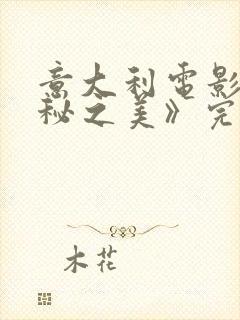 意大利電影
秘之美》完
木花